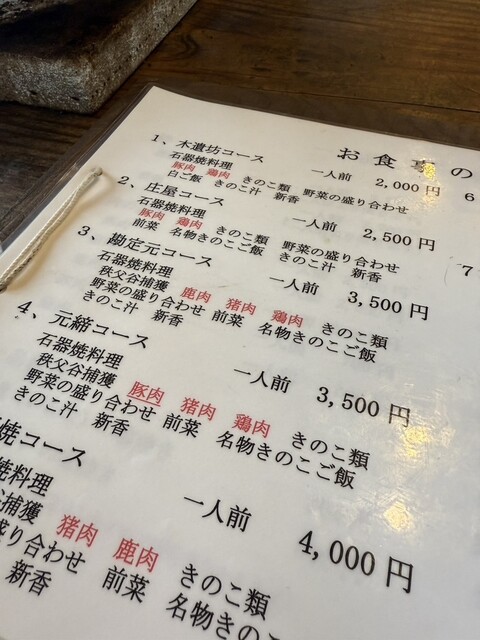 お食事の
1、木遺坊コース 一人前 2,000円
石器焼料理
豚肉 鶏肉 きのこ類 野菜の盛り合わせ
白ご飯 きのこ汁 新香
2、庄屋コース 一人前 2,500円
石器焼料理
豚肉 鶏肉 きのこ類 野菜の盛り合わせ
前菜 名物きのこご飯 きのこ汁 新香
3、勘定元コース 一人前 3,500円
石器焼料理
秩父谷捕獲 鹿肉 猪肉 鶏肉 きのこ類
野菜の盛り合わせ 前菜 名物きのこご飯
きのこ汁 新香
4、元締コース 一人前 3,500円
石器焼料理
秩父谷捕獲 豚肉 猪肉 鶏肉 きのこ類
野菜の盛り合わせ 前菜 名物きのこご飯
きのこ汁 新香
焼コース 一人前 4,000円
焼料理
捕獲 猪肉 鹿肉 きのこ類
盛り合わせ 前菜 名物きのこ
新香
6
7